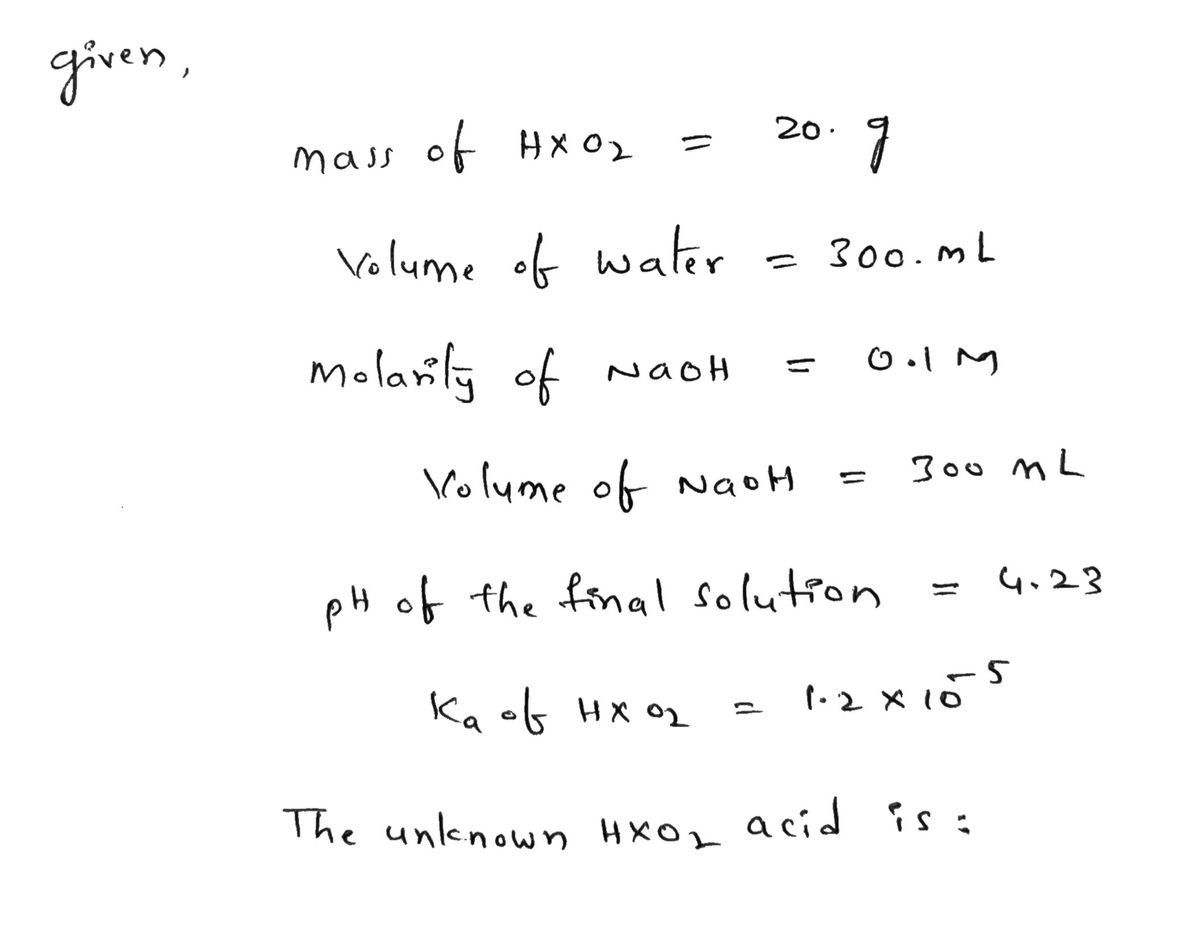 given,
mass of HXO₂ = 20. g
Volume of water = 300. mL
Molarity of NaOH = 0.1 M
Volume of NaOH = 300 mL
pH of the final solution = 4.23
Ka of HXO₂ = 1.2 × 10⁻⁵
The unknown HXO₂ acid is :